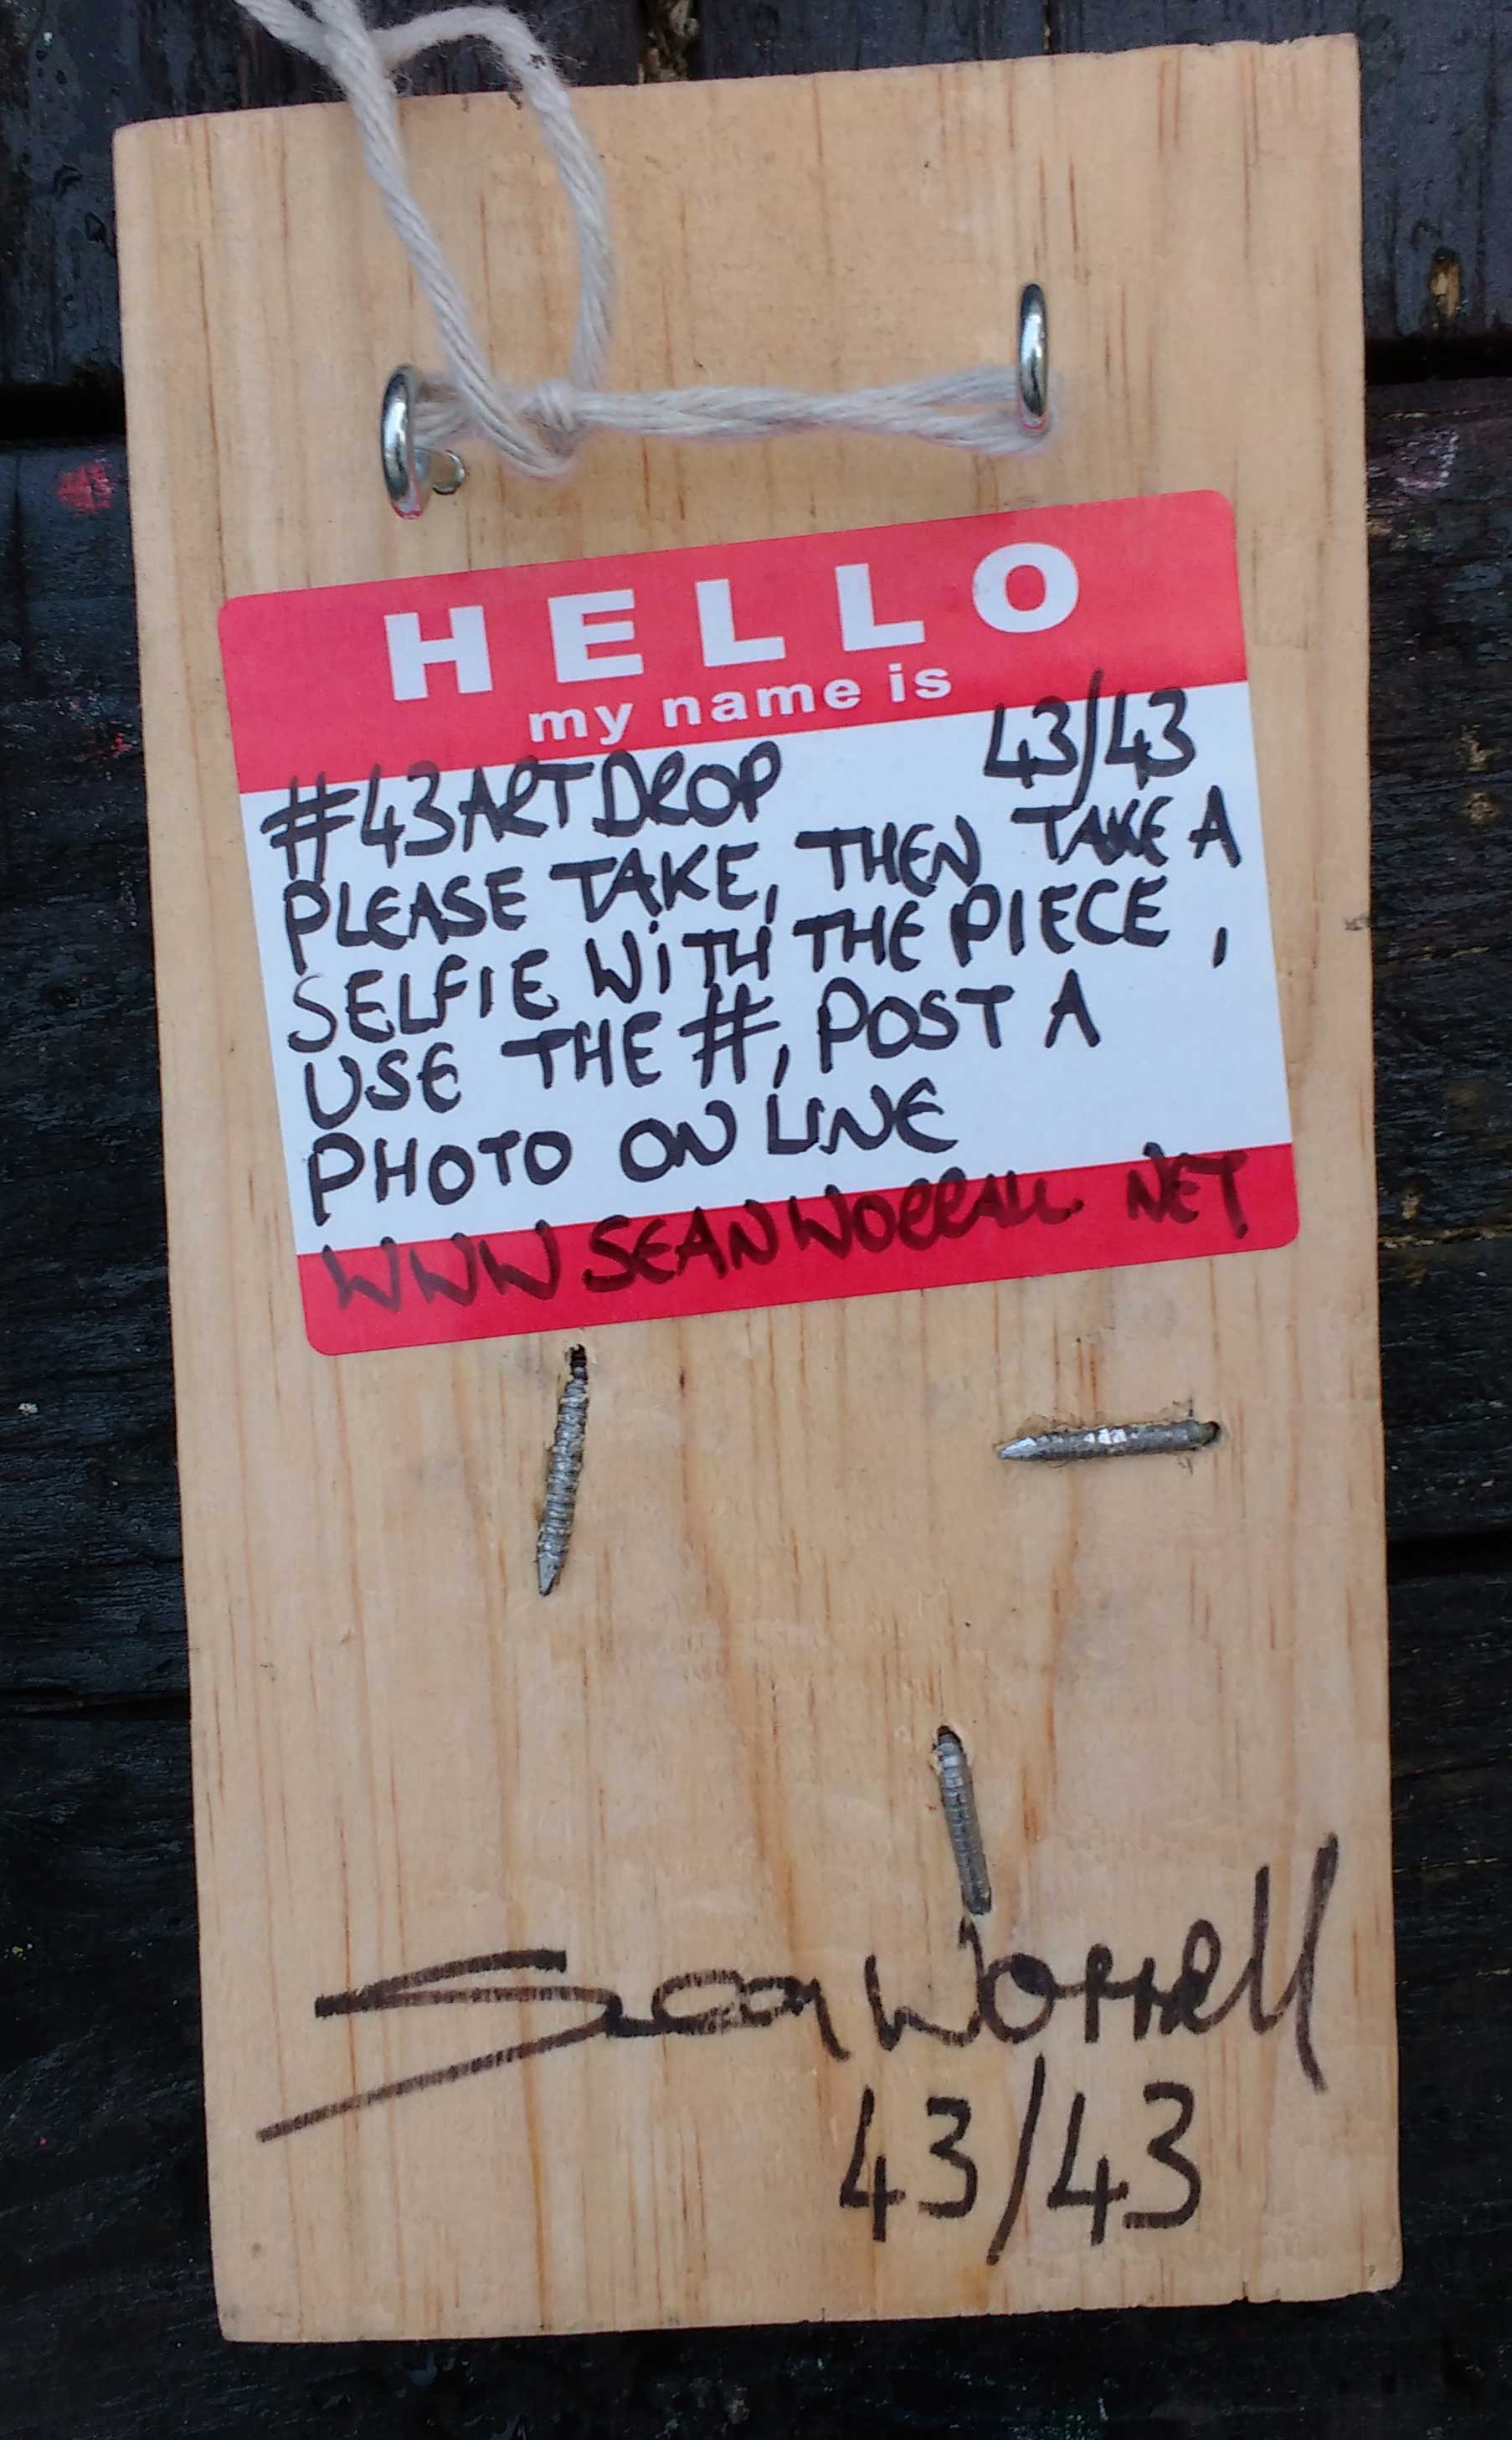 HELLO
my name is
#43ARTDROP 43/43
PLEASE TAKE, THEN TAKE A
SELFIE WITH THE PIECE,
USE THE #, POST A
PHOTO ON LINE
WWW SEANWORRALL. NET
Sean Worrall
43/43